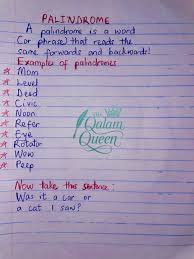 PALINDROME
A palindrome is a word
(or phrase) that reads the
same forwards and backwards!
Examples of palindromes
Mom
Level
Dead
Civic
Noon
Refer
Eye
Rotator
Wow
Peep
THE
Qalam
Queen
Now take this sentence:
Was it a car or
a cat I saw?